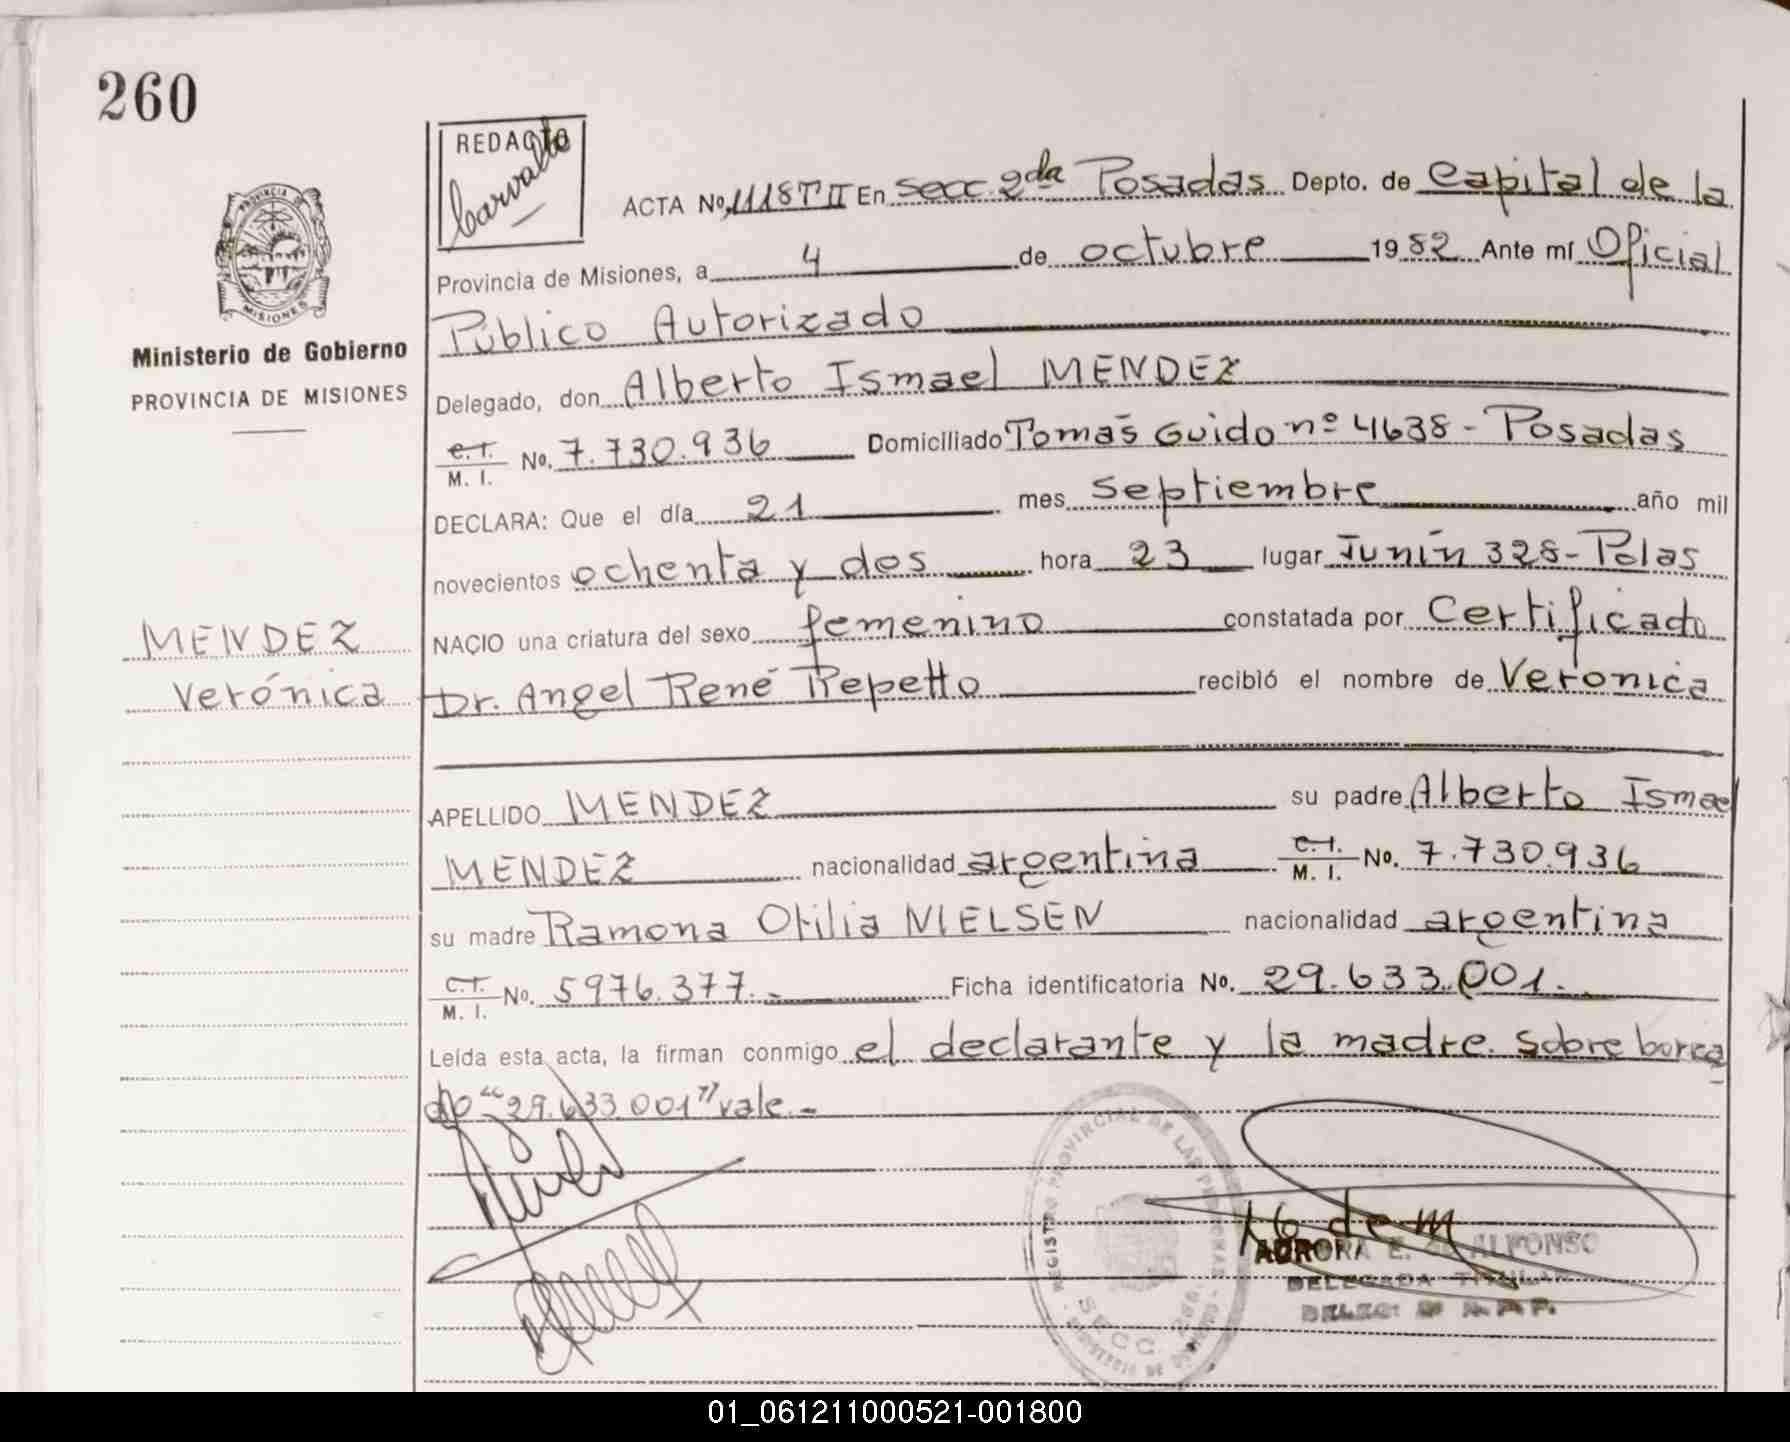 260
REDACTO
Carvallo
ACTA No. 1118 T II En Secc. 2da Posadas Depto. de Capital de la
Provincia de Misiones, a 4 de octubre 1982 Ante mí Oficial
Público Autorizado
PROVINCIA DE MISIONES
Ministerio de Gobierno
PROVINCIA DE MISIONES
Delegado, don Alberto Ismael MENDEZ
C.I. M. I. No. 7.730.936 Domiciliado Tomás Guido nº 4638 - Posadas
DECLARA: Que el día 21 mes septiembre año mil
novecientos ochenta y dos hora 23 lugar Junín 328 - Pdas
NACIO una criatura del sexo femenino constatada por Certificado
Dr. Angel René Repetto recibió el nombre de Verónica
MENDEZ
Verónica
APELLIDO MENDEZ su padre Alberto Ismae
MENDEZ nacionalidad argentina C.I. M. I. No. 7.730.936
su madre Ramona Otilia NIELSEN nacionalidad argentina
C.I. M. I. No. 5976.377.- Ficha identificatoria No. 29.633.001.-
Leída esta acta, la firman conmigo el declarante y la madre. Sobre borra
do "29.633.001" vale.-
REGISTRO PROVINCIAL DE LAS PERSONAS
SECC. 2da
MINISTERIO DE GOBIERNO
AURORA E. de ALFONSO
DELEGADA TITULAR
01_061211000521-001800